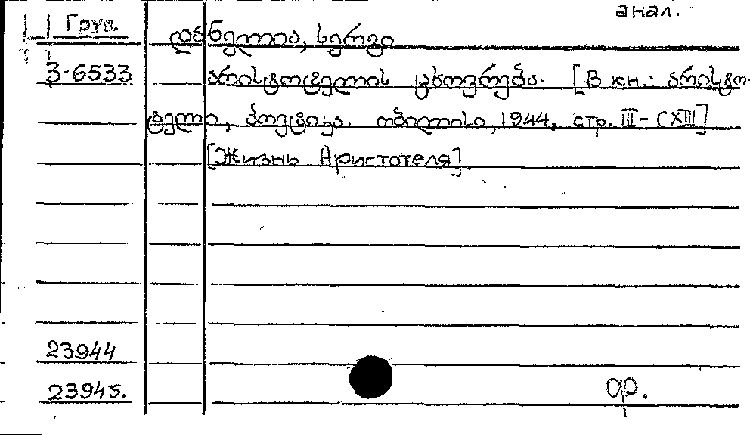 анал.
Груз.
დანელია, სერგი
3-6533
არისტოტელის ცხოვრება. [В кн.: არისტო-
ტელე, პოეტიკა. თბილისი, 1944, стр. III-CXIII]
[Жизнь Аристотеля]
23944
23945.